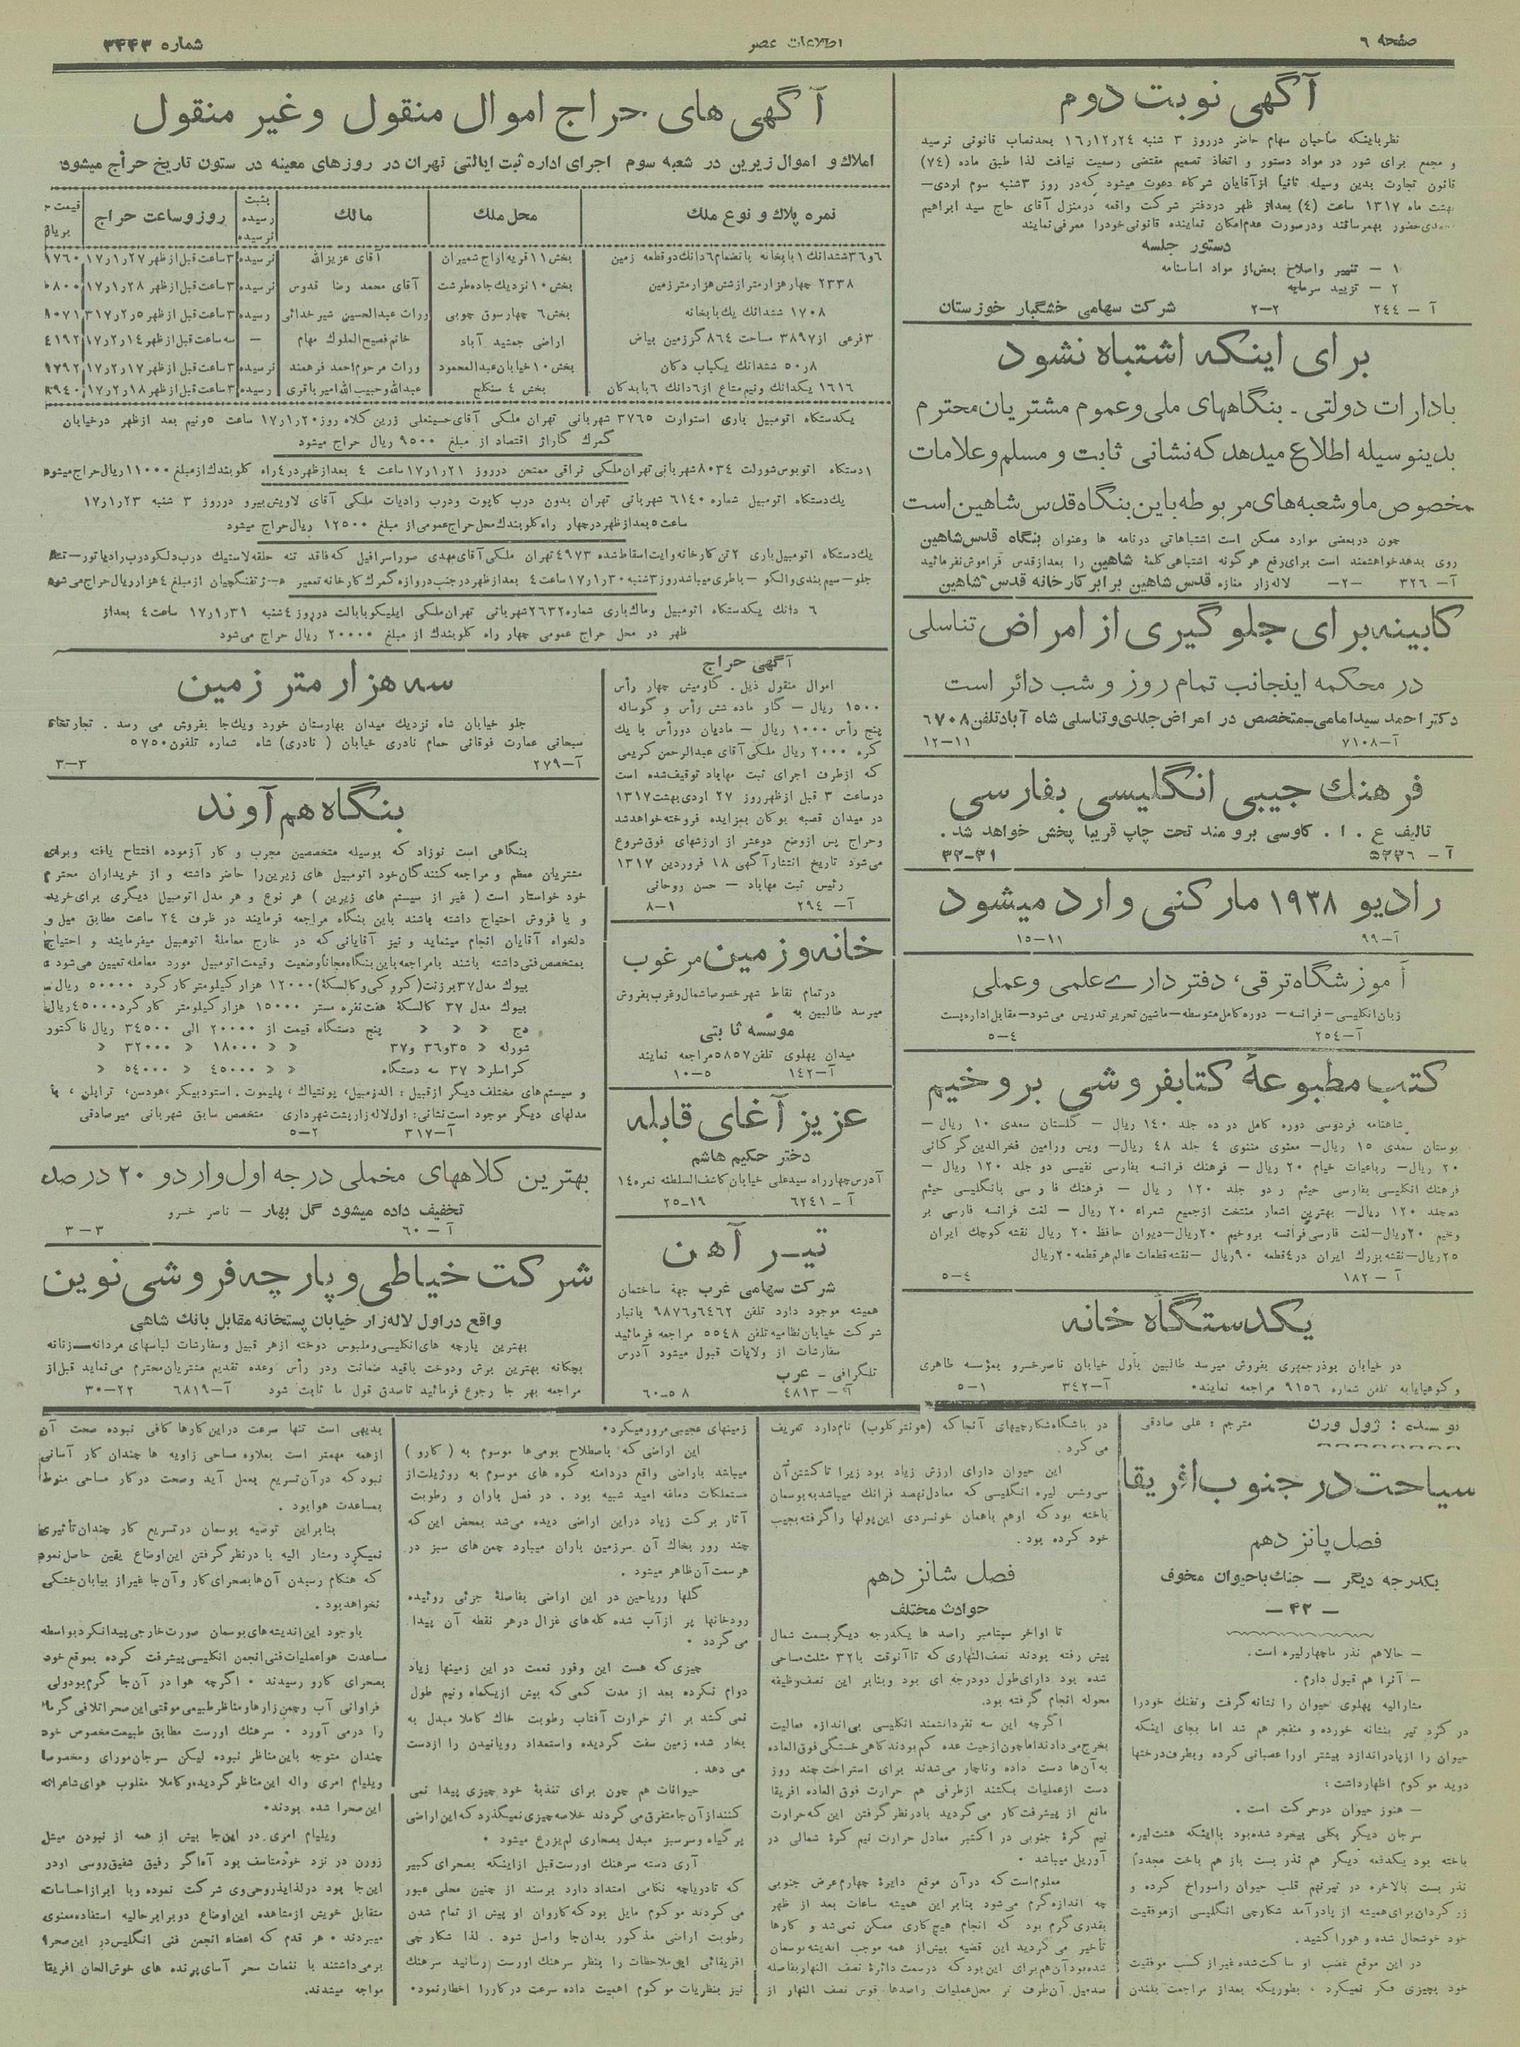 صفحه ٦
اطلاعات عصر
شماره ٣٤٤٣
آگهی نوبت دوم
نظر باینکه صاحبان سهام حاضر در روز ٣ شنبه ١٦٫١٢٫٢٤ بحد نصاب قانونی نرسید
و مجمع برای شور در مواد دستور و اتخاذ تصمیم مقتضی رسمیت نیافت لذا طبق ماده (٧٤)
قانون تجارت بدین وسیله ثانیاً از آقایان شرکاء دعوت میشود که در روز ٣شنبه سوم اردی‌—
بهشت ماه ١٣١٧ ساعت (٤) بعد از ظهر در دفتر شرکت واقعه در منزل آقای حاج سید ابراهیم
حضور بهمرسانند و در صورت عدم امکان نماینده قانونی خود را معرفی نمایند
دستور جلسه
١ — تغییر و اصلاح بعض از مواد اساسنامه
٢ — تزیید سرمایه
آ — ٢٤٤ ٢—٢ شرکت سهامی خشگبار خوزستان
برای اینکه اشتباه نشود
بادارات دولتی - بنگاههای ملی و عموم مشتریان محترم
بدینوسیله اطلاع میدهد که نشانی ثابت و مسلم و علامات
مخصوص ما و شعبه‌های مربوطه باین بنگاه قدس شاهین است
چون در بعضی موارد ممکن است اشتباهاتی در نامه ها و عنوان بنگاه قدس شاهین
روی بدهد خواهشمند است برای رفع هر گونه اشتباهی کلمهٔ شاهین را بعد از قدس فراموش نفرمائید
آ— ٣٢٦ —٢— لاله‌زار مغازه قدس شاهین برابر کارخانه قدس شاهین
کابینه برای جلوگیری از امراض تناسلی
در محکمه اینجانب تمام روز و شب دائر است
دکتر احمد سید امامی—متخصص در امراض جلدی و تناسلی شاه آباد تلفن ٦٧٠٨
آ—٧١٠٨ ١٢—١١
فرهنك جیبی انگلیسی بفارسی
تالیف ع . ا . کاوسی برومند تحت چاپ قریبا پخش خواهد شد .
آ — ٥٢٣٦ ٣٢—٣١
رادیو ١٩٣٨ مارکنی وارد میشود
آ—٩٩ ١٥—١١
آموزشگاه ترقی، دفترداری علمی و عملی
زبان انگلیسی — فرانسه — دوره کامل متوسطه — ماشین تحریر تدریس می‌شود— مقابل اداره پست
آ—٢٥٤ ٥—٤
کتب مطبوعهٔ کتابفروشی بروخیم
شاهنامه فردوسی دوره کامل در ده جلد ١٤٠ ریال — گلستان سعدی ١٠ ریال —
بوستان سعدی ١٥ ریال— معنوی مثنوی ٤ جلد ٤٨ ریال— ویس ورامین فخرالدین گرگانی
٢٠ ریال— رباعیات خیام ٢٠ ریال — فرهنك فرانسه بفارسی نفیسی دو جلد ١٢٠ ریال —
فرهنك انگلیسی بفارسی حیئم در دو جلد ١٢٠ ریال — فرهنك فارسی بانگلیسی حیئم
جلد ١٢٠ ریال— بهترین اشعار منتخب از جمیع شعراء ٢٠ ریال — لغت فرانسه فارسی بر
وخیم ٢٠ریال—لغت فارسی فرانسه بروخیم ٢٠ریال—دیوان حافظ ٢٠ ریال نقشه کوچك ایران
٢٥ریال—نقشه بزرك ایران در٤قطعه ٩٠ریال —نقشه قطعات عالم هر قطعه ٢٠ریال
آ — ١٨٢ ٥—٤
یکدستگاه خانه
در خیابان بوذرجمهری بفروش میرسد طالبین بأول خیابان ناصرخسرو بمؤسسه طاهری
و کوهپایا به تلفن شماره ٩١٥٦ مراجعه نمایند٠ آ—٣٤٢ ٥—١
آگهی های حراج اموال منقول و غیر منقول
املاك و اموال زیرین در شعبه سوم اجرای اداره ثبت ایالتی تهران در روزهای معینه در ستون تاریخ حراج میشود
نمره پلاك و نوع ملك | محل ملك | مالك | بثبت رسیده نرسیده | روز و ساعت حراج | قیمت بریال
٦و٣٦ ششدانك ١ بابخانه بانضمام ٦دانك دو قطعه زمین | بخش ١١ قریه اراج شمیران | آقای عزیزالله | نرسیده | ٣ساعت قبل از ظهر ١٧٫١٫٢٧
٢٣٣٨ چهار هزار متر از شش هزار متر زمین | بخش ١٠ نزدیك جاده طرشت | آقای محمد رضا قدوس | نرسیده | ٣ساعت قبل از ظهر ١٧٫١٫٢٨
١٧٠٨ ششدانك یك بابخانه | بخش ٦ چهار سوق چوبی | وراث عبدالحسین شیر خدائی | رسیده | ٣ساعت قبل از ظهر ٣١٧٫٢٫٥
٣ فرعی از ٣٨٩٧ مساحت ٨٦٤ گز زمین بیاض | اراضی جمشید آباد | خانم فصیح الملوك مهام | — | سه ساعت قبل از ظهر ١٧٫٢٫١٤
٨و٥٠ ششدانك یکباب دکان | بخش ١٠ خیابان عبدالمحمود | وراث مرحوم احمد فرهمند | نرسیده | ٣ساعت قبل از ظهر ١٧٫٢٫١٧
١٦١٦ یکدانك و نیم مشاع از ٦دانك ٦ بابدکان | بخش ٤ سنگلج | عبدالله و حبیب الله امیر باقری | رسیده | ٣ساعت قبل از ظهر ١٧٫٢٫١٨
یکدستگاه اتومبیل باری استوارت ٣٧٦٥ شهربانی تهران ملکی آقای حسینعلی زرین کلاه روز ١٧٫١٫٢٠ ساعت ٥ونیم بعد از ظهر در خیابان
گمرك گاراژ اقتصاد از مبلغ ٩٥٠٠ ریال حراج میشود
١ دستگاه اتوبوس شورلت ٨٠٣٤ شهربانی تهران ملکی نراقی ممتحن در روز ١٧٫١٫٢١ ساعت ٤ بعد از ظهر در ٤راه کلوبندك از مبلغ ١١٠٠٠ریال حراج میشود
یك دستگاه اتومبیل شماره ٦١٤٠ شهربانی تهران بدون درب کاپوت و درب رادیات ملکی آقای لاویش بیرو در روز ٣ شنبه ١٧٫١٫٢٣
ساعت ٥ بعد از ظهر در چهار راه کلوبندك محل حراج عمومی از مبلغ ١٢٥٠٠ ریال حراج میشود
یك دستگاه اتومبیل باری ٢ تن کارخانه وایت اسقاط شده ٤٩٧٣ تهران ملکی آقای مهدی صور اسرافیل که فاقد تنه حلقه لاستیك درب دلکو درب رادیاتور—
جلو — سیم بندی و الکو — باطری میباشد روز ٣شنبه ١٧٫١٫٣٠ ساعت ٤ بعد از ظهر در جنب دروازه گمرك کارخانه تعمیر تفنگچیان از مبلغ ٤ هزار ریال حراج می‌شود
٦ دانك یکدستگاه اتومبیل و ماك باری شماره ٢٦٣٢ شهربانی تهران ملکی ایلیکو بابالت در روز ٤ شنبه ١٧٫١٫٣١ ساعت ٤ بعد از
ظهر در محل حراج عمومی چهار راه کلوبندك از مبلغ ٢٠٠٠٠ ریال حراج می‌شود
آگهی حراج
اموال منقول ذیل . گاومیش چهار رأس
١٥٠٠ ریال — گاو ماده شش رأس و گوساله
پنج رأس ١٠٠٠ ریال — مادیان دورأس با یك
کره ٢٠٠٠ ریال ملکی آقای عبدالرحمن کریمی
که از طرف اجرای ثبت مهاباد توقیف شده است
در ساعت ٣ قبل از ظهر روز ٢٧ اردی بهشت ١٣١٧
در میدان قصبه بوکان بمزایده فروخته خواهد شد
و حراج پس از وضع دو عشر از ارزشهای فوق شروع
می‌شود تاریخ انتشار آگهی ١٨ فروردین ١٣١٧
رئیس ثبت مهاباد — حسن روحانی
آ— ٢٩٤ ٨—١
خانه و زمین مرغوب
در تمام نقاط شهر خصوصا شمال و غرب بفروش
میرسد طالبین به
موسسه ثابتی
میدان پهلوی تلفن ٥٨٥٧ مراجعه نمایند
آ—١٤٢ ١٠—٥
عزیز آغای قابله
دختر حکیم هاشم
آدرس چهار راه سید علی خیابان کاشف السلطنه نمره ١٤
آ — ٦٢٤١ ٢٥—١٩
تیر آهن
شرکت سهامی غرب جهة ساختمان
همیشه موجود دارد تلفن ٦٤٦٢و٩٨٧٦ بانبار
شرکت خیابان نظامیه تلفن ٥٥٤٨ مراجعه فرمائید
سفارشات از ولایات قبول میشود آدرس
تلگرافی — عرب
آ— ٤٨١٣ ٦٠—٥٨
سه هزار متر زمین
جلو خیابان شاه نزدیك میدان بهارستان خورد و یك جا بفروش می رسد . تجارتخانه
سبحانی عمارت فوقانی حمام نادری خیابان ( نادری) شاه شماره تلفون ٥٧٥٠
آ—٢٧٩ ٣—٣
بنگاه هم آوند
بنگاهی است نوزاد که بوسیله متخصصین مجرب و کار آزموده افتتاح یافته و برای
مشتریان معظم و مراجعه کنندگان خود اتومبیل های زیرین را حاضر داشته و از خریداران محترم
خود خواستار است ( غیر از سیستم های زیرین ) هر نوع و هر مدل اتومبیل دیگری برای خرید
و یا فروش احتیاج داشته باشند باین بنگاه مراجعه فرمایند در ظرف ٢٤ ساعت مطابق میل و
دلخواه آقایان انجام مینماید و نیز آقایانی که در خارج معاملهٔ اتومبیل میفرمایند و احتیاج
بمتخصص فنی داشته باشند با مراجعه باین بنگاه مجاناً وضعیت و قیمت اتومبیل مورد معامله تعیین می‌شود
بیوك مدل ٣٧ برزنت (کروکی و کالسکهٔ) ١٢٠٠٠ هزار کیلومتر کار کرد ٥٠٠٠٠ ریال
بیوك مدل ٣٧ کالسکهٔ هفت نفره مستر ١٥٠٠٠ هزار کیلومتر کار کرد ٤٥٠٠٠ ریال
دج » » » پنج دستگاه قیمت از ٢٠٠٠٠ الی ٣٤٥٠٠ ریال فاکتور
شورله » ٣٥و٣٦ و٣٧ » » ١٨٠٠٠ » ٣٢٠٠٠ » »
کراسلر » ٣٧ سه دستگاه » » ٤٥٠٠٠ » ٥٤٠٠٠ » »
و سیستم‌های مختلف دیگر از قبیل : الدزمبیل، پونتیاك ، پلیموت . استودبیکر، هودسن، تراپلن ، با
مدلهای دیگر موجود است نشانی: اول لاله زار پشت شهرداری متخصص سابق شهربانی میرصادقی
آ—٣١٧ ٥—٢
بهترین کلاههای مخملی درجه اول وارد و ٢٠ درصد
تخفیف داده میشود گل بهار — ناصر خسرو
آ—٦٠ ٣—٣
شرکت خیاطی و پارچه فروشی نوین
واقع در اول لاله زار خیابان پستخانه مقابل بانك شاهی
بهترین پارچه های انگلیسی و ملبوس دوخته از هر قبیل و سفارشات لباسهای مردانه — زنانه
بچگانه بهترین برش و دوخت باقید ضمانت و در رأس وعده تقدیم مشتریان محترم می‌نماید قبل از
مراجعه بهر جا رجوع فرمائید تا صدق قول ما ثابت شود آ—٦٨١٩ ٣٠—٢٢
نویسنده : ژول ورن مترجم : علی صادقی
سیاحت در جنوب افریقا
فصل پانزدهم
یکدرجه دیگر — جنك با حیوان مخوف
— ٤٢ —
— حالا هم نذر ما چهار لیره است .
— آنرا هم قبول دارم .
مشارالیه پهلوی حیوان را نشانه گرفت و تفنك خود را
در کرد تیر بنشانه خورده و منفجر هم شد اما بجای اینکه
حیوان را از پا در اندازد بیشتر او را عصبانی کرده و بطرف درختها
دوید موکوم اظهار داشت :
— هنوز حیوان در حرکت است .
سرجان دیگر بکلی بیخرد شده بود با اینکه هشت لیره
باخته بود یکدفعه دیگر هم نذر بست باز هم باخت مجدداً
نذر بست بالاخره در تیر نهم قلب حیوان را سوراخ کرده و
کردان برای همیشه از پا در آمد شکارچی انگلیسی از موفقیت
خود خوشحال شده و هورا کشید .
در این موقع غضب او ساکت شده غیر از کسب موفقیت
خود بچیزی فکر نمیکرد ، بطوریکه بعد از مراجعت بلندن
در باشگاه شکارچیهای آنجا که (هونتر کلوب) نام دارد تعریف
می کرد .
این حیوان دارای ارزش زیاد بود زیرا تا کشتن آن
سی و شش لیره انگلیسی که معادل نهصد فرانك میباشد به بوسمان
باخته بود که او هم با همان خونسردی این پولها را گرفته بجیب
خود کرده بود .
فصل شانزدهم
حوادث مختلف
تا اواخر سپتامبر راصد ها یکدرجه دیگر بسمت شمال
پیش رفته بودند نصف النهاری که تا آنوقت با ٣٢ مثلث مساحی
شده بود دارای طول دودرجه ای بود و بنابر این نصف وظیفه
محوله انجام گرفته بود.
اگرچه این سه نفر دانشمند انگلیسی بی‌اندازه فعالیت
بخرج می‌دادند اما چون از حیث عده کم بودند گاهی خستگی فوق العاده
به‌آن‌ها دست داده و ناچار می‌شدند برای استراحت چند روز
دست از عملیات بکشند از طرفی هم حرارت فوق العاده افریقا
مانع از پیشرفت کار می گردید با در نظر گرفتن این که حرارت
نیم کرهٔ جنوبی در اکتبر معادل حرارت نیم کرهٔ شمالی در
آوریل میباشد ٠
معلوم است که در آن موقع دایرهٔ چهارم عرض جنوبی
چه اندازه گرم می‌شود بنابر این همیشه ساعات بعد از ظهر
بقدری گرم بود که انجام هیچ کاری ممکن نمی‌شد و کارها
تأخیر می گردید این قضیه بیش از همه موجب اندیشه بوسمان
شده بود آن هم برای این بود که در سمت دائرهٔ نصف النهار بفاصله
صد میل آن طرف تر محل عملیات راصدها قوس نصف النهار از
زمینهای عجیبی مرور میکرد٠
این اراضی که باصطلاح بومی‌ها موسوم به ( کارو )
میباشد باراضی واقع در دامنه کوه های موسوم به روژیلت از
مستملکات دماغه امید شبیه بود . در فصل باران و رطوبت
آثار برکت زیاد در این اراضی دیده می‌شد بمحض این که
چند روز بخاك آن سرزمین باران میبارد چمن‌های سبز در
هر سمت آن ظاهر میشود .
گلها و ریاحین در این اراضی بفاصلهٔ جزئی روئیده
رودخانها پر از آب شده گله‌های غزال در هر نقطه آن پیدا
می گردد ٠
چیزی که هست این وفور نعمت در این زمینها زیاد
دوام نکرده بعد از مدت کمی که بیش از یکماه و نیم طول
نمی‌کشد بر اثر حرارت آفتاب رطوبت خاك کاملا مبدل به
بخار شده زمین سفت گردیده و استعداد رویانیدن را از دست
می دهد .
حیوانات هم چون برای تغذیهٔ خود چیزی پیدا نمی
کنند از آن جا متفرق می گردند خلاصه چیزی نمیگذرد که این اراضی
پر گیاه و سرسبز مبدل بصحاری لم یزرع میشود ٠
آری دسته سرهنك اورست قبل از اینکه بصحرای کبیر
که تا دریاچه نکامی امتداد دارد برسند از چنین محلی عبور
می کردند موکوم مایل بود که کاروان او پیش از تمام شدن
رطوبت اراضی مذکور بدان جا واصل شود . لذا شکارچی
افریقائی این ملاحظات را بنظر سرهنك اورست رسانید سرهنك
نیز بنظریات موکوم اهمیت داده سرعت در کار را اخطار نمود٠
بدیهی است تنها سرعت در این کارها کافی نبوده صحت آن
از همه مهمتر است بعلاوه مساحی زاویه ها چندان کار آسانی
نبود که در آن تسریع بعمل آید و صحت در کار مساحی منوط
بمساعدت هوا بود .
بنابراین توصیه بوسمان در تسریع کار چندان تأثیری
نمیکرد و مشار الیه با در نظر گرفتن این اوضاع یقین حاصل نمود
که هنگام رسیدن آن‌ها بصحرای کار و آن جا غیر از بیابان خشکی
نخواهد بود .
باوجود این اندیشه های بوسمان صورت خارجی پیدا نکرد بواسطه
مساعدت هوا عملیات فنی انجمن انگلیسی پیشرفت کرده بموقع خود
بصحرای کارو رسیدند ٠ اگرچه هوا در آن جا گرم بود ولی
فراوانی آب و چمن زارها و مناظر طبیعی موقتی این صحرا تلافی گرما
را درمی آورد ٠ سرهنك اورست مطابق طبیعت مخصوص خود
چندان متوجه باین مناظر نبوده لیکن سرجان مورای و مخصوصا
ویلیام امری واله این مناظر گردیده و کاملا مقلوب هوای شاعرانه
این صحرا شده بودند٠
ویلیام امری در این جا بیش از همه از نبودن میشل
زورن در نزد خود متاسف بود آه اگر رفیق شفیق روسی او در
این جا بود در لذایذ روحی وی شرکت نموده و با ابراز احساسات
متقابل خویش از مشاهده این اوضاع دو برابر حالیه استفاده معنوی
میبردند ٠ هر قدم که اعضاء انجمن فنی انگلیس در این صحرا
برمی‌داشتند با نغمات سحر آسای پرنده های خوش الحان افریقا
مواجه میشدند.